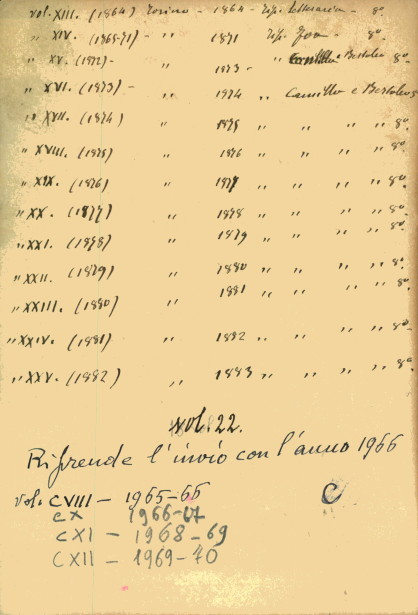 vol. XIII. (1864) Torino - 1864 - Tip. Letteraria - 8º
" XIV. (1868-71) - " 1871 Tip. - 8º.
" XV. (1872) - " 1873 - " Camillo e Bertolero 8º.
" XVI. (1873) - " 1874 " Camillo e Bertolero 8
" XVII. (1874) " 1875 " " " " 8º.
" XVIII. (1875) " 1876 " " " " 8º.
" XIX. (1876) " 1877 " " " " 8º.
" XX. (1877) " 1878 " " " " 8º.
" XXI. (1878) " 1879 " " " " 8º.
" XXII. (1879) " 1880 " " " " 8º.
" XXIII. (1880) " 1881 " " " " 8º.
" XXIV. (1881) " 1882 " " " " 8º.
" XXV. (1882) " 1883 " " " " 8º.
vol. 22.
Riprende l'invio con l'anno 1966
vol. CVIII - 1965-66
CX 1966-67
CXI - 1968-69
CXII - 1969-70
C